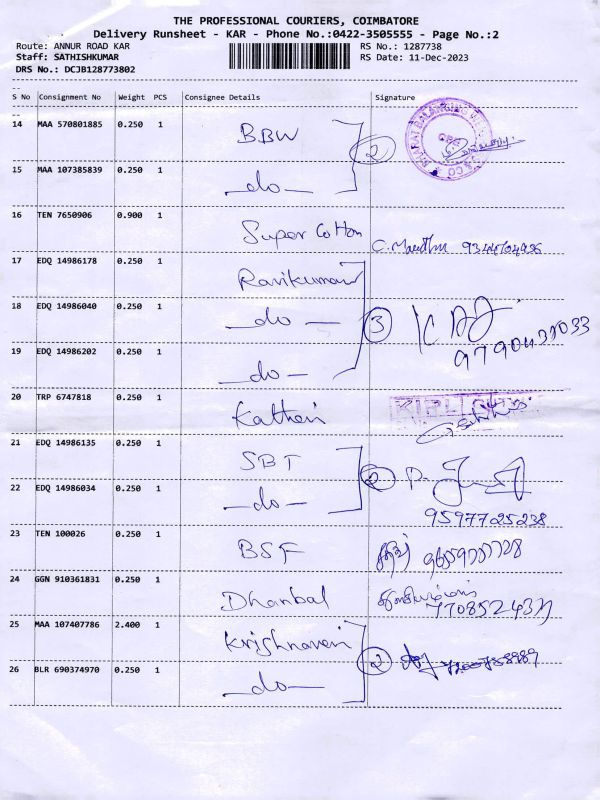 THE PROFESSIONAL COURIERS, COIMBATORE
Delivery Runsheet - KAR - Phone No.:0422-3505555 - Page No.:2
Route: ANNUR ROAD KAR RS No.: 1287738
Staff: SATHISHKUMAR RS Date: 11-Dec-2023
DRS No.: DCJB128773802
S No Consignment No Weight PCS Consignee Details Signature
14 MAA 570801885 0.250 1 BBW 2
15 MAA 107385839 0.250 1 —do—
16 TEN 7650906 0.900 1 Super Cotton
17 EDQ 14986178 0.250 1 Ravikumar
18 EDQ 14986040 0.250 1 —do— 3
19 EDQ 14986202 0.250 1 —do—
20 TRP 6747818 0.250 1 Katheri
21 EDQ 14986135 0.250 1 SBT 2
22 EDQ 14986034 0.250 1 —do— 9597725238
23 TEN 100026 0.250 1 BSF
24 GGN 910361831 0.250 1 Dhanbal
25 MAA 107407786 2.400 1 Krishnaveni 2
26 BLR 690374970 0.250 1 —do—